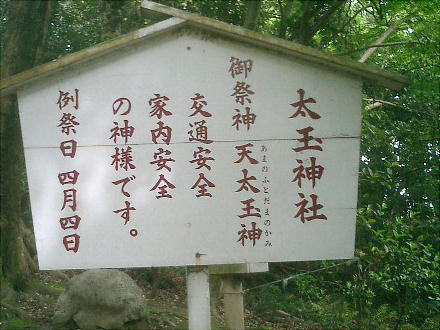 太玉神社
御祭神 天太玉神
あまのふとだまのかみ
交通安全
家内安全
の神様です。
例祭日 四月四日